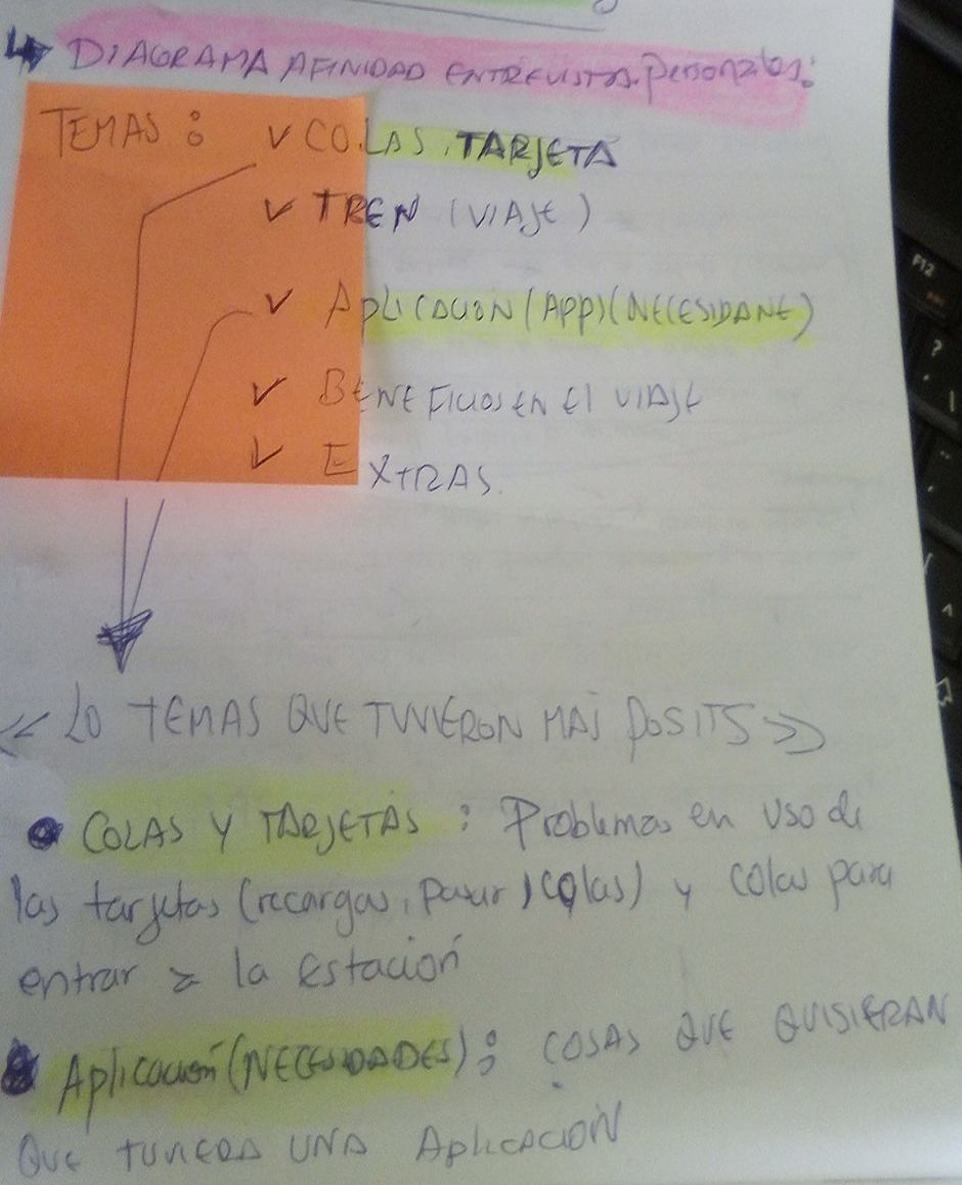 DIAGRAMA AFINIDAD ENTREVISTAS Personales:
TEMAS : ✓ COLAS, TARJETA
✓ TREN (VIAJE)
✓ APLICACIÓN (APP) (NECESIDADE)
✓ BENEFICIOS EN El VIAJE
✓ EXTRAS.
<< LO TEMAS QUE TUVIERON MAS POSITS >>
• COLAS Y TARJETAS : Problemas en uso de
las tarjetas (recargas, pasar, colas) y colas para
entrar a la estación
• Aplicación (NECESIDADES) : COSAS QUE QUISIERAN
QUE TUVIERA UNA APLICACIÓN
F12